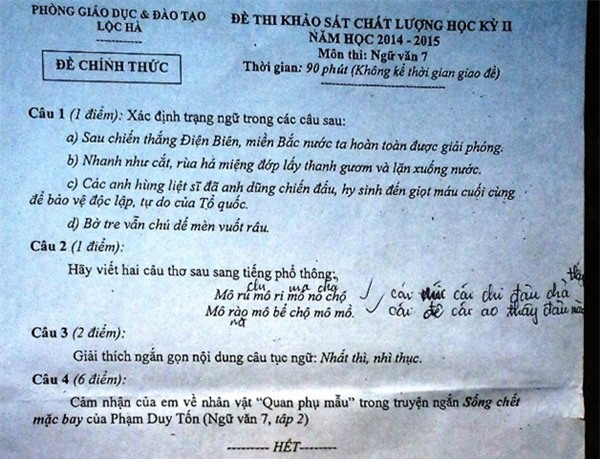 PHÒNG GIÁO DỤC & ĐÀO TẠO
LỘC HÀ
ĐỀ CHÍNH THỨC
ĐỀ THI KHẢO SÁT CHẤT LƯỢNG HỌC KỲ II
NĂM HỌC 2014 - 2015
Môn thi: Ngữ văn 7
Thời gian: 90 phút (Không kể thời gian giao đề)
Câu 1 (1 điểm): Xác định trạng ngữ trong các câu sau:
a) Sau chiến thắng Điện Biên, miền Bắc nước ta hoàn toàn được giải phóng.
b) Nhanh như cắt, rùa há miệng đớp lấy thanh gươm và lặn xuống nước.
c) Các anh hùng liệt sĩ đã anh dũng chiến đấu, hy sinh đến giọt máu cuối cùng
để bảo vệ độc lập, tự do của Tổ quốc.
d) Bờ tre vẫn chú dế mèn vuốt râu.
Câu 2 (1 điểm):
Hãy viết hai câu thơ sau sang tiếng phổ thông:
Mô rú mô ri mô nỏ chộ
Mô rào mô bể chộ mô mô.
cái cái chi đâu chả thấy
cái đê cái ao thấy đâu nào
Câu 3 (2 điểm):
Giải thích ngắn gọn nội dung câu tục ngữ: Nhất thì, nhì thục.
Câu 4 (6 điểm):
Cảm nhận của em về nhân vật “Quan phụ mẫu” trong truyện ngắn Sống chết
mặc bay của Phạm Duy Tốn (Ngữ văn 7, tập 2)
HẾT